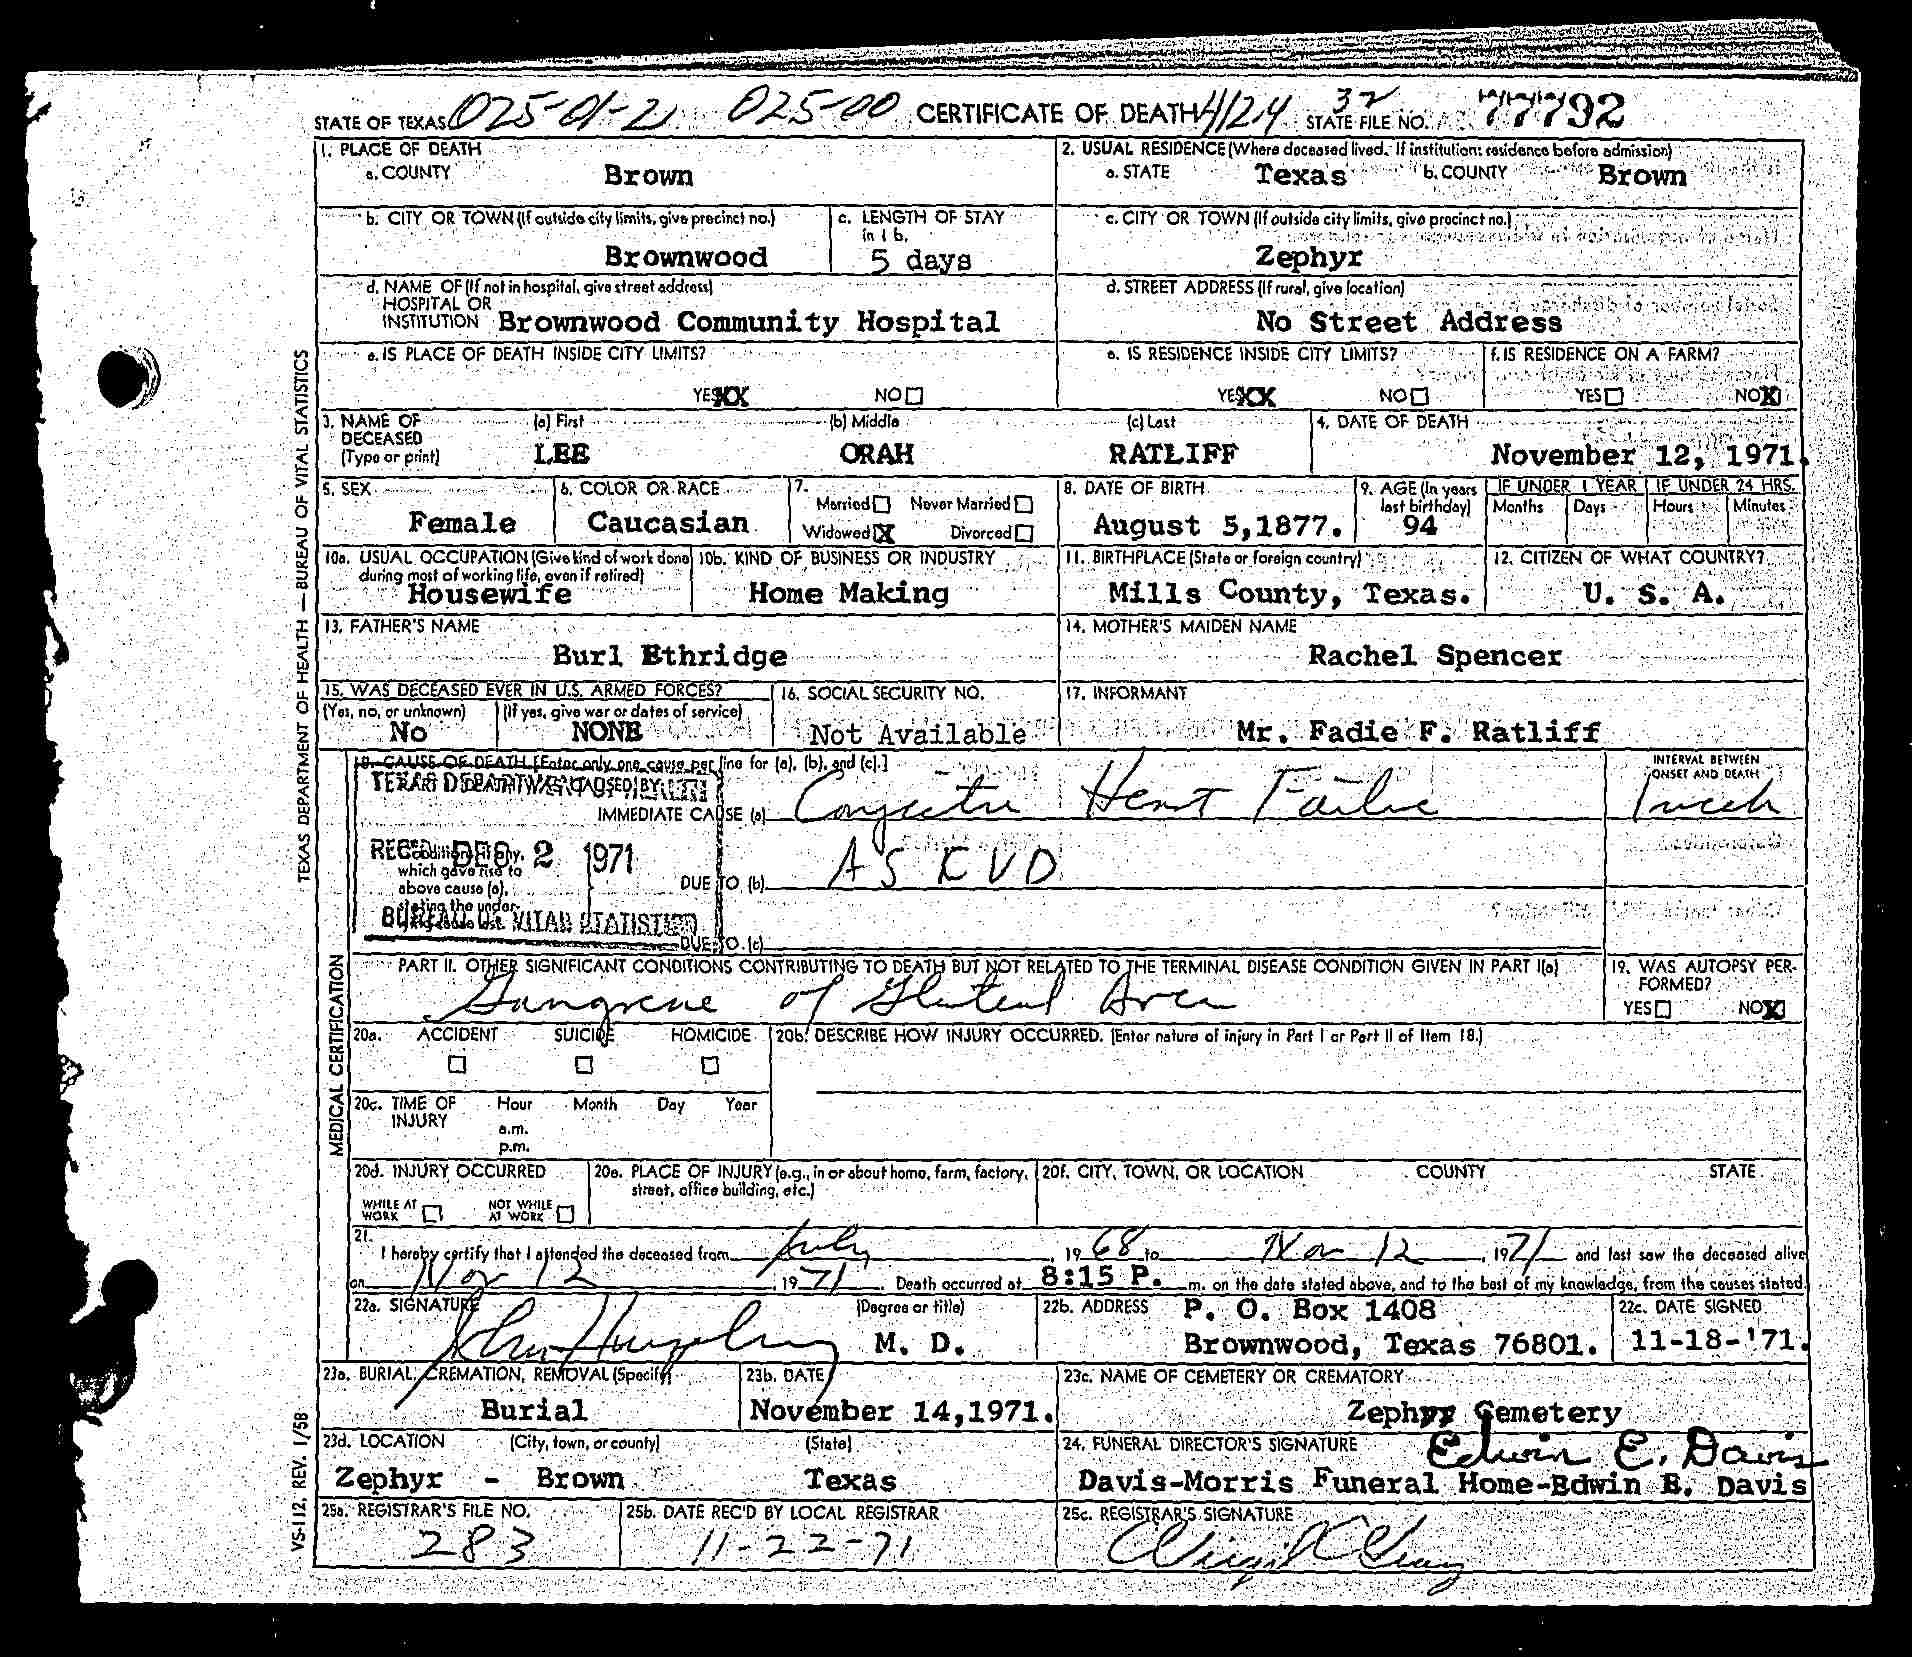 STATE OF TEXAS 025-01-2 025-00 CERTIFICATE OF DEATH 4124 32 STATE FILE NO. 77792
1. PLACE OF DEATH
a. COUNTY Brown
2. USUAL RESIDENCE (Where deceased lived. If institution: residence before admission)
a. STATE Texas b. COUNTY Brown
b. CITY OR TOWN (If outside city limits, give precinct no.) Brownwood
c. LENGTH OF STAY in 1 b. 5 days
c. CITY OR TOWN (If outside city limits, give precinct no.) Zephyr
d. NAME OF (If not in hospital, give street address)
HOSPITAL OR
INSTITUTION Brownwood Community Hospital
d. STREET ADDRESS (If rural, give location)
No Street Address
e. IS PLACE OF DEATH INSIDE CITY LIMITS?
YES XX NO
e. IS RESIDENCE INSIDE CITY LIMITS?
YES XX NO
f. IS RESIDENCE ON A FARM?
YES NO X
3. NAME OF DECEASED (Type or print)
(a) First (b) Middle (c) Last
LEE ORAH RATLIFF
4. DATE OF DEATH
November 12, 1971.
5. SEX
Female
6. COLOR OR RACE
Caucasian
7.
Married Never Married
Widowed X Divorced
8. DATE OF BIRTH
August 5,1877.
9. AGE (In years last birthday)
94
IF UNDER 1 YEAR IF UNDER 24 HRS.
Months Days Hours Minutes
10a. USUAL OCCUPATION (Give kind of work done
during most of working life, even if retired)
Housewife
10b. KIND OF BUSINESS OR INDUSTRY
Home Making
11. BIRTHPLACE (State or foreign country)
Mills County, Texas.
12. CITIZEN OF WHAT COUNTRY?
U. S. A.
13. FATHER'S NAME
Burl Ethridge
14. MOTHER'S MAIDEN NAME
Rachel Spencer
15. WAS DECEASED EVER IN U.S. ARMED FORCES?
(Yes, no, or unknown) (If yes, give war or dates of service)
No NONE
16. SOCIAL SECURITY NO.
Not Available
17. INFORMANT
Mr. Fadie F. Ratliff
18. CAUSE OF DEATH [Enter only one cause per line for (a), (b), and (c).]
INTERVAL BETWEEN
ONSET AND DEATH
IMMEDIATE CAUSE (a) Congestive Heart Failure 1 week
REC'D DEC 2 1971
which gave rise to
above cause (a),
stating the under-
DUE TO (b) ASCVD
BUREAU OF VITAL STATISTICS
DUE TO (c)
PART II. OTHER SIGNIFICANT CONDITIONS CONTRIBUTING TO DEATH BUT NOT RELATED TO THE TERMINAL DISEASE CONDITION GIVEN IN PART I(a)
Gangrene of Gluteal Area
19. WAS AUTOPSY PER-
FORMED?
YES NO X
20a. ACCIDENT SUICIDE HOMICIDE
20b. DESCRIBE HOW INJURY OCCURRED. (Enter nature of injury in Part I or Part II of Item 18.)
20c. TIME OF INJURY Hour Month Day Year
a.m.
p.m.
20d. INJURY OCCURRED
WHILE AT WORK NOT WHILE AT WORK
20e. PLACE OF INJURY (e.g., in or about home, farm, factory,
street, office building, etc.)
20f. CITY, TOWN, OR LOCATION COUNTY STATE
21.
I hereby certify that I attended the deceased from July, 1968 to Nov 12, 1971 and last saw the deceased alive
on Nov 12, 1971. Death occurred at 8:15 P. m. on the date stated above, and to the best of my knowledge, from the causes stated.
22a. SIGNATURE (Degree or title)
M. D.
22b. ADDRESS P. O. Box 1408
Brownwood, Texas 76801.
22c. DATE SIGNED
11-18-'71.
23a. BURIAL, CREMATION, REMOVAL (Specify)
Burial
23b. DATE
November 14,1971.
23c. NAME OF CEMETERY OR CREMATORY
Zephyr Cemetery
23d. LOCATION (City, town, or county) (State)
Zephyr - Brown Texas
24. FUNERAL DIRECTOR'S SIGNATURE Edwin E. Davis
Davis-Morris Funeral Home-Edwin E. Davis
25a. REGISTRAR'S FILE NO.
283
25b. DATE REC'D BY LOCAL REGISTRAR
11-22-71
25c. REGISTRAR'S SIGNATURE
TEXAS DEPARTMENT OF HEALTH — BUREAU OF VITAL STATISTICS
MEDICAL CERTIFICATION
VS-112. REV. 1/58